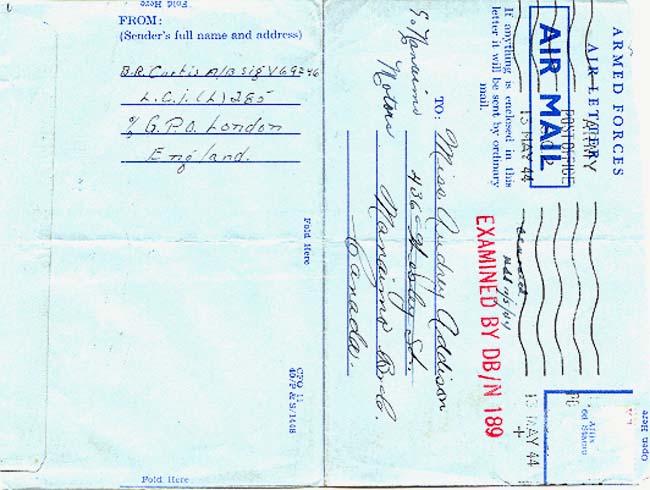 Fold Here
FROM:
(Sender's full name and address)
B.R. Curtis A/B Sig V69246
L.C.I. (L) 285
℅ G.P.O. London
England.
Fold Here
CPO 11
Fold Here
ARMED FORCES
AIR LETTER
If anything is enclosed in this
letter it will be sent by ordinary
mail.
AIR MAIL
ARMY
POST OFFICE
13 MAY 44
TO: Miss Audrey Addison
436 St.
Nanaimo B.C.
Canada.
℅ Nanaimo
Motors
EXAMINED BY DB/N 189
13 MAY 44
Affix
Stamp
Open Here